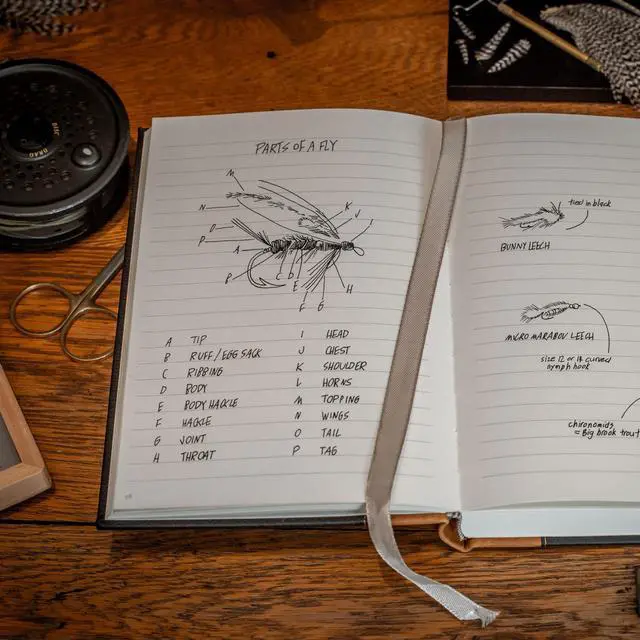 PARTS OF A FLY
M
N
K
J
P
A
E
H
F G
A TIP
B RUFF/EGG SACK
C RIBBING
D BODY
E BODY HACKLE
F HACKLE
G JOINT
H THROAT
I HEAD
J CHEST
K SHOULDER
L HORNS
M TOPPING
N WINGS
O TAIL
P TAG
tied in black
BUNNY LEECH
MICRO MARABOU LEECH
size 12 or 14 curved
nymph hook
chironomids
= Big brook trout
DRAG